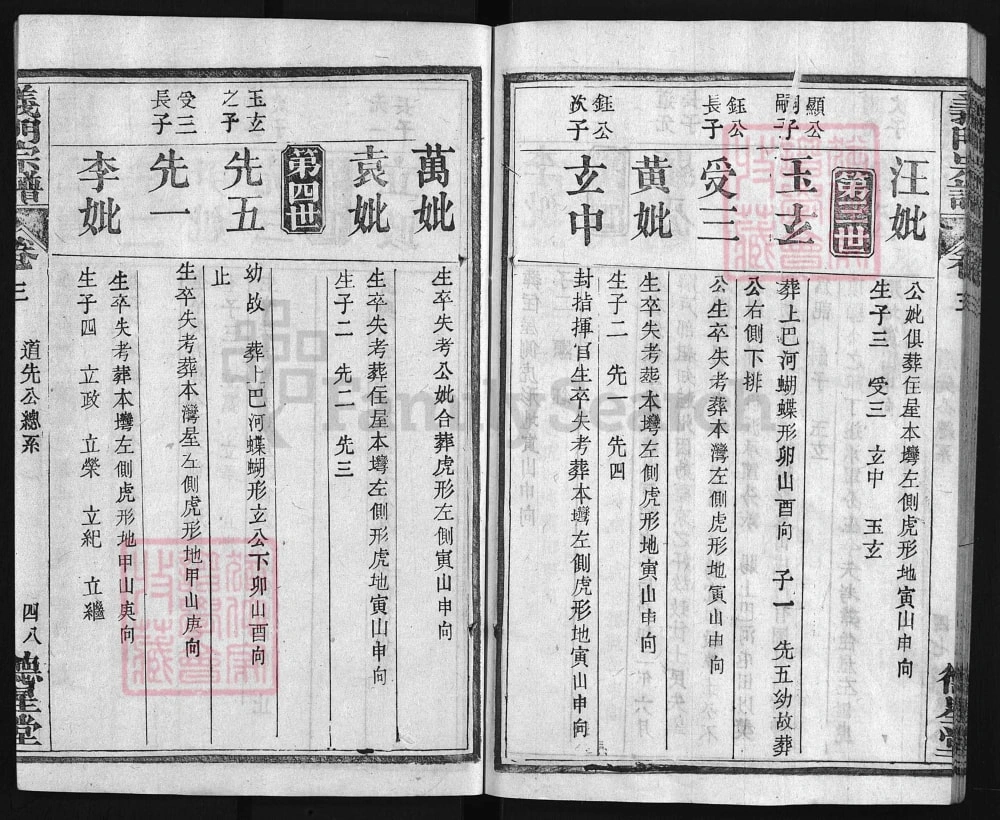 汪妣
公妣俱葬在星本塆左側虎形地寅山申向
生子三 受三 玄中 玉玄
第三世
顯公
嗣子
玉玄
葬上巴河蝴蝶形卯山酉向 子一 先五幼故葬
公右側下排
鈺公
長子
受三
公生卒失考葬本灣左側虎形地寅山申向
黄妣
生卒失考葬本塆左側虎形地寅山申向
生子二 先一 先四
鈺公
次子
玄中
封指揮官生卒失考葬本塆左側虎形地寅山申向
萬妣
生卒失考公妣合葬虎形左側寅山申向
袁妣
生卒失考葬在星本塆左側形虎地寅山申向
生子二 先二 先三
第四世
玉玄
之子
先五
幼故 葬上巴河蝶蝴形玄公下卯山酉向
止
受三
長子
先一
生卒失考葬本灣星左側虎形地甲山庚向
李妣
生卒失考葬本塆左側虎形地甲山庚向
生子四 立政 立榮 立紀 立繼
義門宗譜
卷三
道先公總系
四八
德星堂
FamilySearch